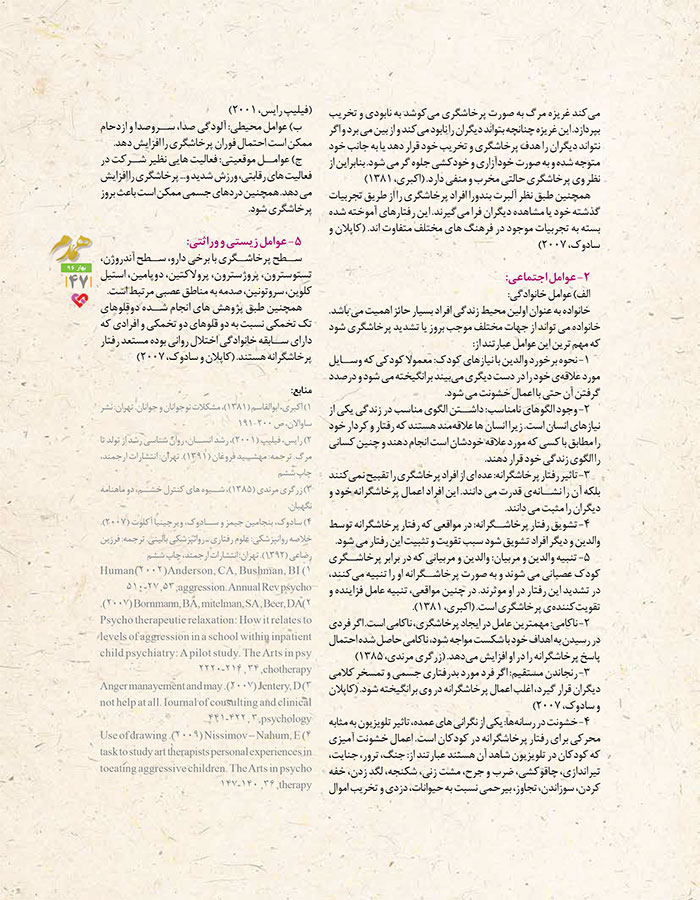 می‌کند غریزه مرگ به صورت پرخاشگری می‌کوشد به نابودی و تخریب
بپردازد. این غریزه چنانچه بتواند دیگران را نابود می‌کند و از بین می‌برد و اگر
نتواند دیگران را هدف پرخاشگری و تخریب خود قرار دهد یا به جانب خود
متوجه شده و به صورت خودآزاری و خودکشی جلوه گر می شود. بنابراین از
نظر وی پرخاشگری حالتی مخرب و منفی دارد. (اکبری، ۱۳۸۱)
همچنین طبق نظر آلبرت بندورا افراد پرخاشگری را از طریق تجربیات
گذشته خود یا مشاهده دیگران فرا می‌گیرند. این رفتارهای آموخته شده
بسته به تجربیات موجود در فرهنگ های مختلف متفاوت اند. (کاپلان و
سادوک، ۲۰۰۷)
۲- عوامل اجتماعی:
الف) عوامل خانوادگی:
خانواده به عنوان اولین محیط زندگی افراد بسیار حائز اهمیت می باشد.
خانواده می تواند از جهات مختلف موجب بروز یا تشدید پرخاشگری شود
که مهم ترین این عوامل عبارتند از:
۱- نحوه برخورد والدین با نیازهای کودک: معمولا کودکی که وسایل
مورد علاقه‌ی خود را در دست دیگری می‌بیند برانگیخته می شود و درصدد
گرفتن آن حتی با اعمال خشونت می شود.
۲- وجود الگوهای نامناسب: داشتن الگوی مناسب در زندگی یکی از
نیازهای انسان است. زیرا انسان ها علاقه‌مند هستند که رفتار و کردار خود
را مطابق با کسی که مورد علاقه خودشان است انجام دهند و چنین کسانی
را الگوی زندگی خود قرار دهند.
۳- تاثیر رفتار پرخاشگرانه: عده‌ای از افراد پرخاشگری را تقبیح نمی‌کنند
بلکه آن را نشانه‌ی قدرت می دانند. این افراد اعمال پرخاشگرانه خود و
دیگران را مثبت می دانند.
۴- تشویق رفتار پرخاشگرانه: در مواقعی که رفتار پرخاشگرانه توسط
والدین و دیگر افراد تشویق شود سبب تقویت و تثبیت این رفتار می شود.
۵- تنبیه والدین و مربیان: والدین و مربیانی که در برابر پرخاشگری
کودک عصبانی می شوند و به صورت پرخاشگرانه او را تنبیه می‌کنند،
در تشدید این رفتار در او موثرند. در چنین مواقعی، تنبیه عامل فزاینده و
تقویت کننده‌ی پرخاشگری است. (اکبری، ۱۳۸۱).
۲- ناکامی: مهمترین عامل در ایجاد پرخاشگری، ناکامی است. اگر فردی
در رسیدن به اهداف خود با شکست مواجه شود، ناکامی حاصل شده احتمال
پاسخ پرخاشگرانه را در او افزایش می‌دهد. (زرگری مرندی، ۱۳۸۵)
۳- رنجاندن مستقیم: اگر فرد مورد بدرفتاری جسمی و تمسخر کلامی
دیگران قرار گیرد، اغلب اعمال پرخاشگرانه در وی برانگیخته شود. (کاپلان
و سادوک، ۲۰۰۷)
۴- خشونت در رسانه‌ها: یکی از نگرانی های عمده، تاثیر تلویزیون به مثابه
محرکی برای رفتار پرخاشگرانه در کودکان است. اعمال خشونت آمیزی
که کودکان در تلویزیون شاهد آن هستند عبارتند از: جنگ، ترور، جنایت،
تیراندازی، چاقوکشی، ضرب و جرح، مشت زنی، شکنجه، لگد زدن، خفه
کردن، سوزاندن، تجاوز، بیرحمی نسبت به حیوانات، دزدی و تخریب اموال
(فیلیپ رایس، ۲۰۰۱)
ب) عوامل محیطی: آلودگی صدا، سروصدا و ازدحام
ممکن است احتمال فوران پرخاشگری را افزایش دهد.
ج) عوامل موقعیتی: فعالیت هایی نظیر شرکت در
فعالیت های رقابتی، ورزش شدید و... پرخاشگری را افزایش
می دهد. همچنین دردهای جسمی ممکن است باعث بروز
پرخاشگری شود.
۵- عوامل زیستی و وراثتی:
سطح پرخاشگری با برخی دارو، سطح آندروژن،
تستوسترون، پروژسترون، پرولاکتین، دوپامین، استیل
کلوین، سروتونین، صدمه به مناطق عصبی مرتبط است.
همچنین طبق پژوهش های انجام شده دوقلوهای
تک تخمکی نسبت به دو قلوهای دو تخمکی و افرادی که
دارای سابقه خانوادگی اختلال روانی بوده مستعد رفتار
پرخاشگرانه هستند. (کاپلان و سادوک، ۲۰۰۷)
منابع:
۱) اکبری، ابوالقاسم (۱۳۸۱)، مشکلات نوجوانان و جوانان. تهران: نشر
ساوالان، ص ۲۰۰-۱۹۱
۲) رایس، فیلیپ (۲۰۰۱). رشد انسان، روان شناسی رشد از تولد تا
مرگ. ترجمه: مهشید فروغان (۱۳۹۱) تهران: انتشارات ارجمند،
چاپ ششم
۳) زرگری مرندی (۱۳۸۵)، شیوه های کنترل خشم، دو ماهنامه
نگهبان
۴) سادوک، بنجامین جیمز و سادوک، ویرجینیا آکلوت (۲۰۰۷).
خلاصه روانپزشکی: علوم رفتاری - روانپزشکی بالینی. ترجمه: فرزین
رضاعی (۱۳۹۲). تهران: انتشارات ارجمند، چاپ ششم
Human(۲۰۰۲) Anderson, CA, Bushman, BI (۱
aggression. Annual Rev psycho, ۵۳, ۲۷-۵۱
(۲۰۰۷). Bornmann, BA, mitelman, SA, Beer, DA(۲
Psycho therapeutic relaxation: How it relates to
levels of aggression in a school withig inpatient
child psychiatry: A pilot study. The Arts in psy
chotherapy, ۳۴, ۲۱۶-۲۲۲۰
Anger manayement and may. (۲۰۰۷) Jentery, D (۳
not help at all. Tournal of cousulting and clinical
psychology, ۳, ۴۲۲-۴۴۱
Use of drawing. (۲۰۰۹) Nissimov – Nahum, E (۴
task to study art therapists personal experiences in
toeating aggressive children. The Arts in psycho
therapy, ۳۶, ۱۴۰-۱۴۷
همدم
بهار ۹۶
۴۷